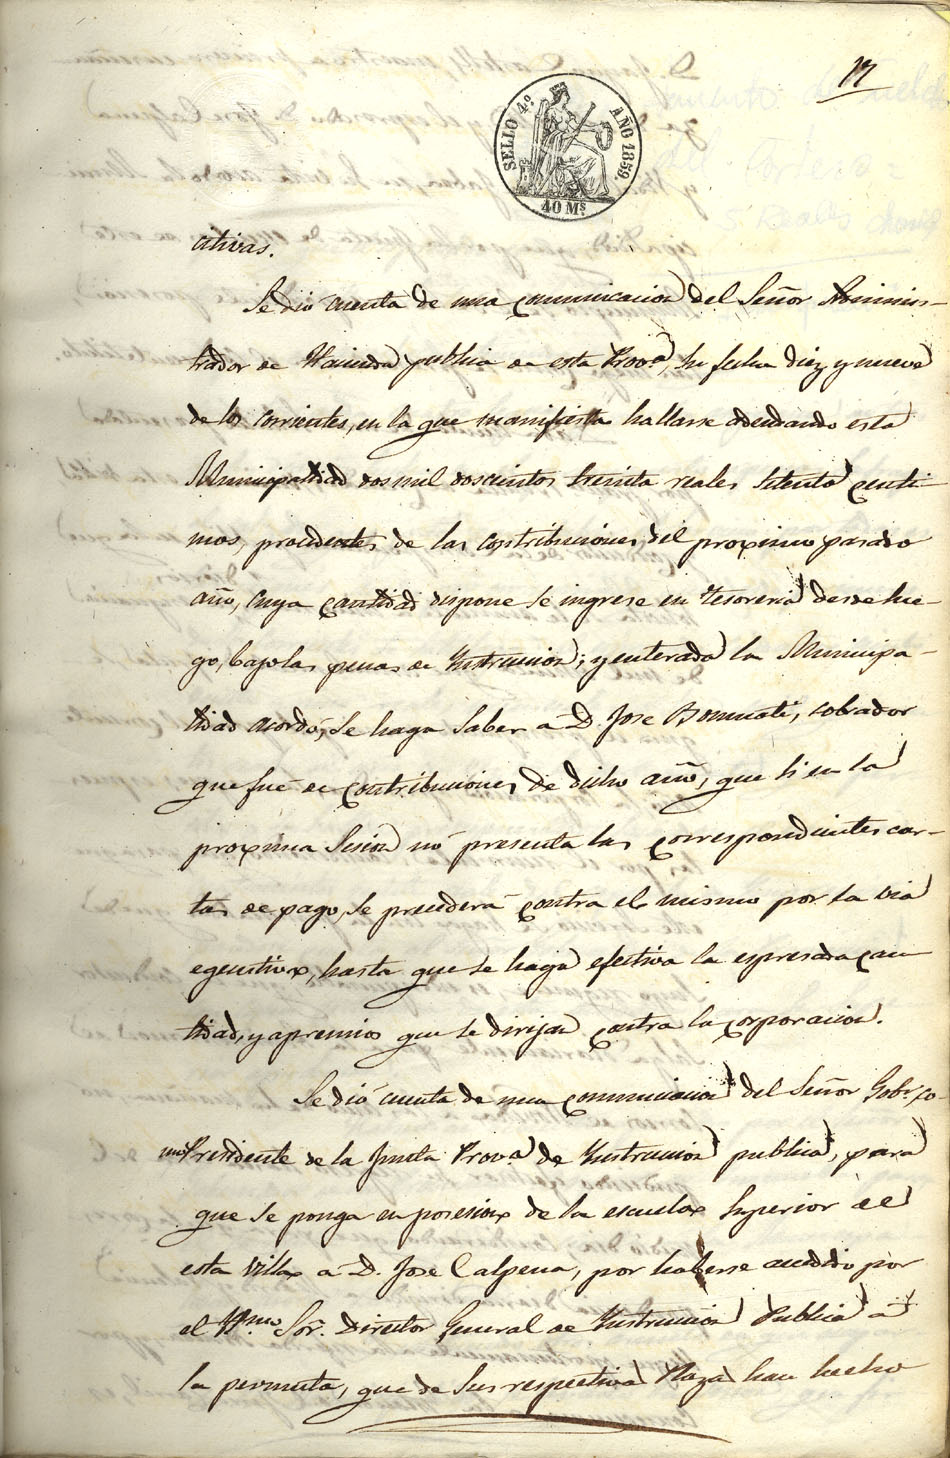 17
SELLO 4º AÑO 1859
40 Ms
ativas.
Se dió cuenta de una comunicacion del Señor Adminis-
trador de Hacienda publica de esta Prov.ª, su fecha diez y nueve
de los corrientes, en la que manifiesta hallarse adeudando esta
Municipalidad dos mil doscientos treinta reales setenta centi-
mos, procedentes de las contribuciones del proximo pasado
año, cuya cantidad dispone se ingrese en Tesoreria desde lue-
go, bajo las penas de Instruccion; y enterada la Municipa-
lidad acordó, se haga saber a D. Jose Bonmati, cobrador
que fué de contribuciones de dicho año, que si en la
proxima Sesion nó presenta las correspondientes car-
tas de pago, se procederá contra el mismo por la via
egecutiva, hasta que se haga efectiva la espresada can
tidad, y apremios que se dirijan contra la corporacion.
Se dió cuenta de una comunicacion del Señor Gobr. co-
mo Presidente de la Junta Prov.ª de Instruccion publica, para
que se ponga en posesion de la escuela Superior de
esta Villa a D. Jose Calpena, por haberse accedido por
el Yltmo Sor. Director General de Instruccion Publica á
la permuta, que de sus respectivas Plazas han hecho